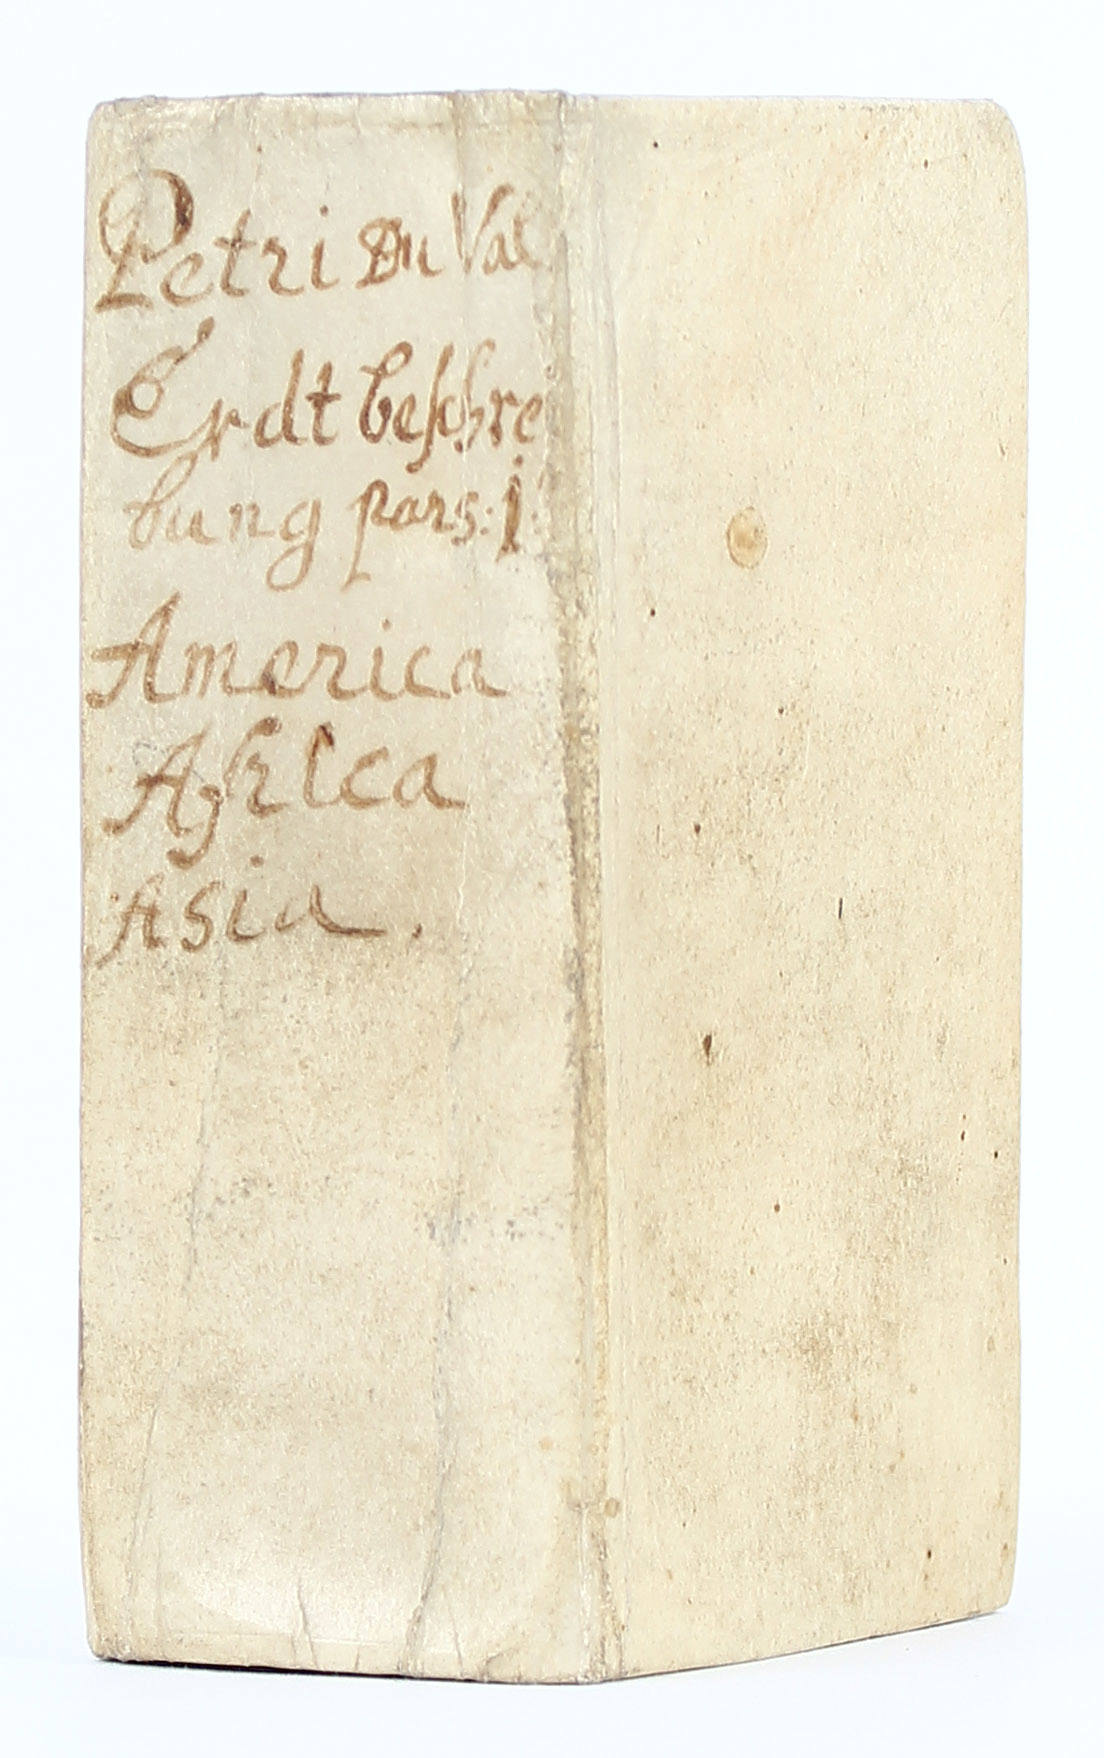 Petri Du Val
Erdtbeschre
bung pars: j:
America
Africa
Asia.